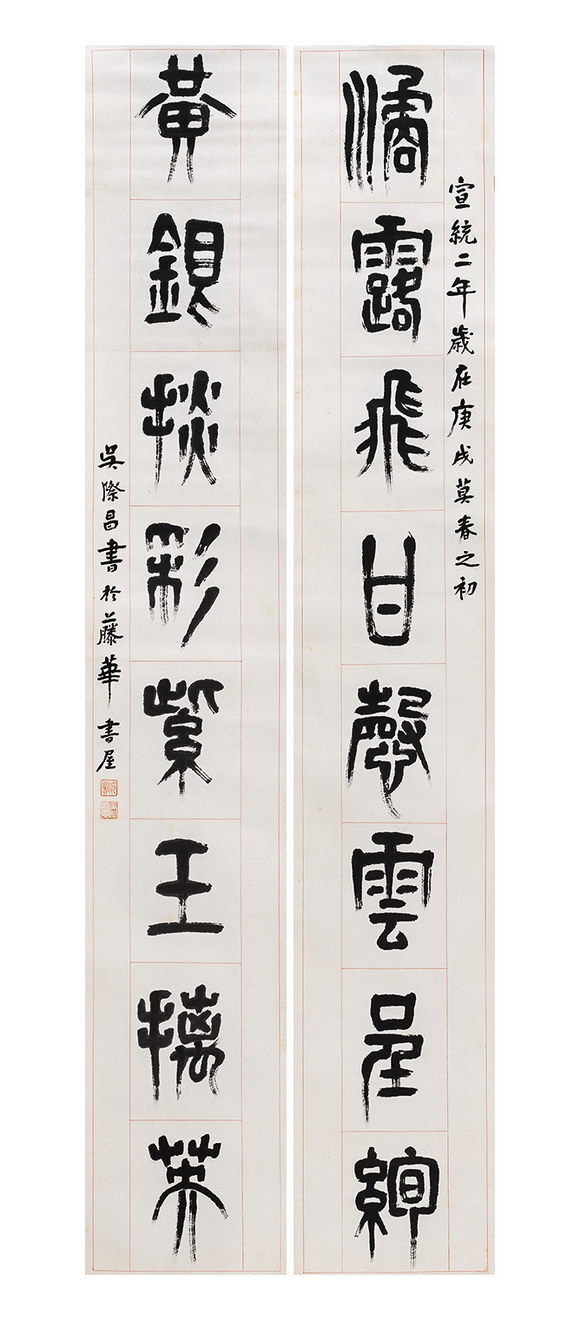 宣統二年歲在庚戌莫春之初
潏露飛甘雲呈絢
黃銀掞彩紫玉摛英
吳際昌書於藤華書屋